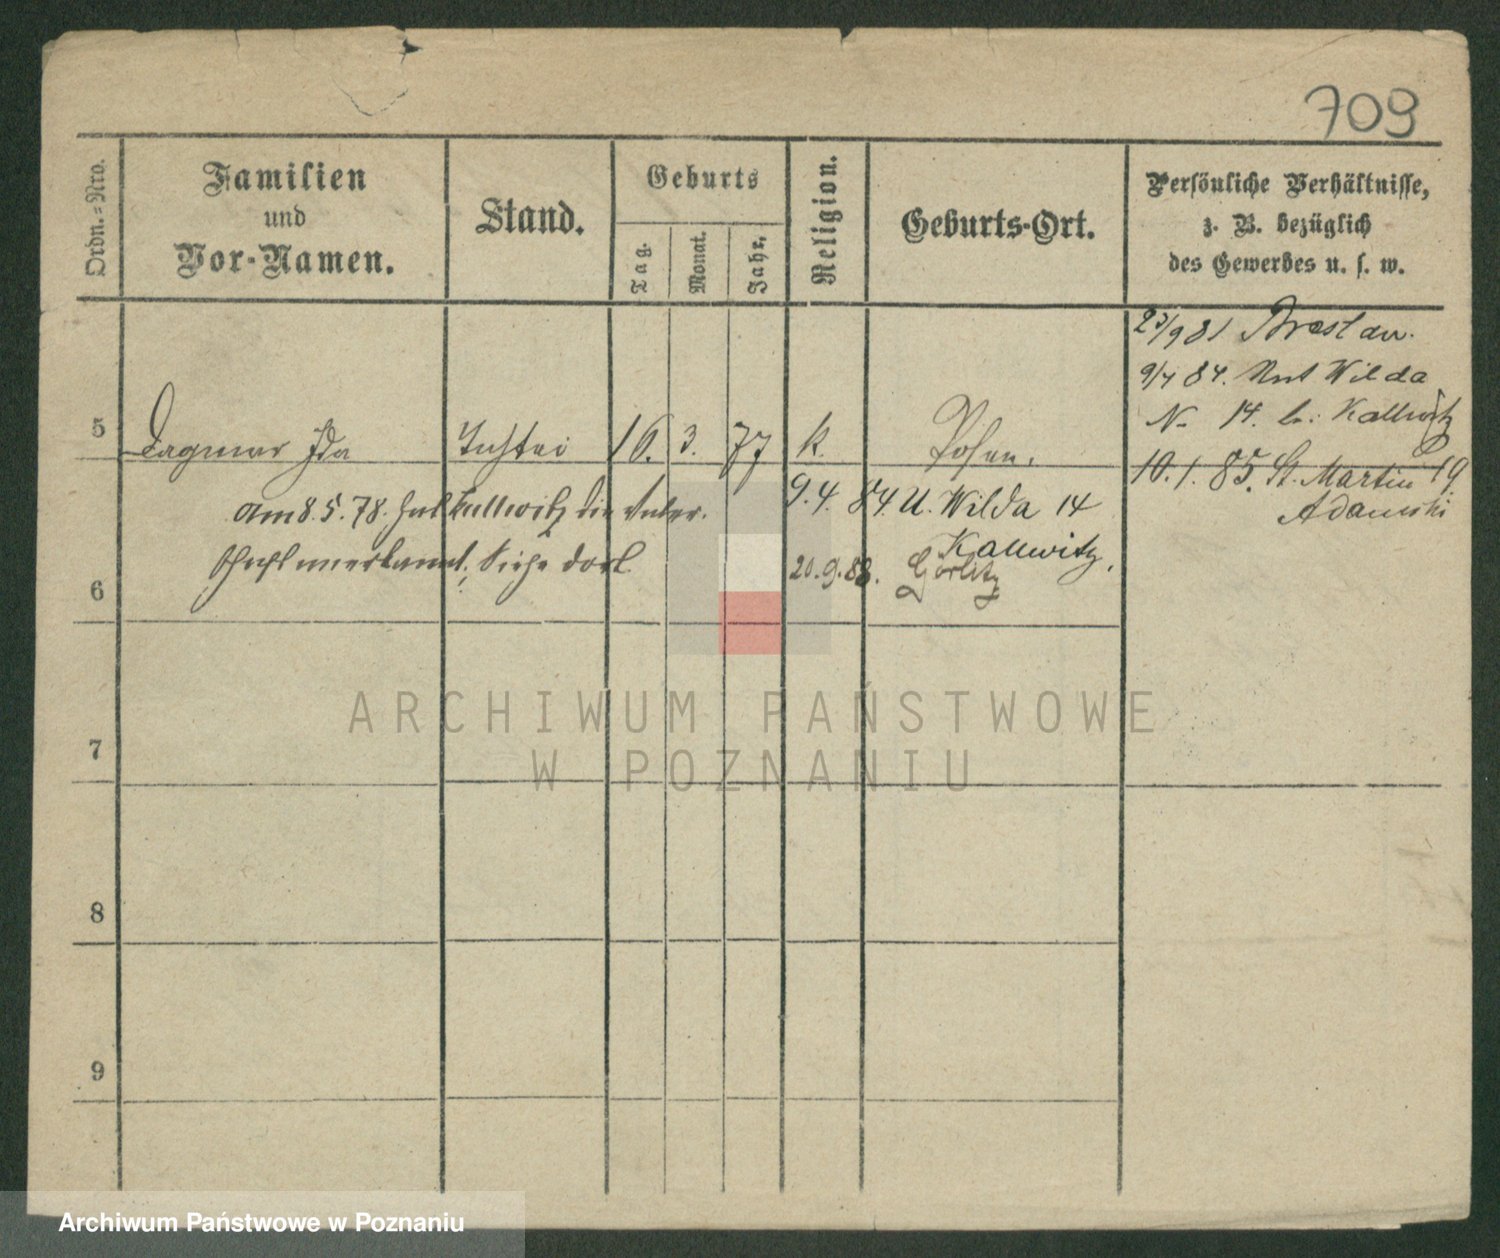 709
Ordn.=Nro.
Familien
und
Vor-Namen.
Stand.
Geburts
Tag.
Monat.
Jahr.
Religion.
Geburts-Ort.
Persönliche Verhältnisse,
z. B. bezüglich
des Gewerbes u. s. w.
23/9 81 Breslau.
9/4 84. Unt Wilda
N- 14. b: Kallwitz
5 Dagmar Ida Tochter 16. 3. 77 k. Posen.
10. 1. 85. St. Martin 19.
Adamski
am 8. 5. 78. hat Kallwitz die Vater-
9. 4. 84. U. Wilda 14
Kallwitz.
schaft anerkannt, siehe dort.
20. 9. 88. Görlitz
6
7
8
9
ARCHIWUM PAŃSTWOWE
W POZNANIU
Archiwum Państwowe w Poznaniu